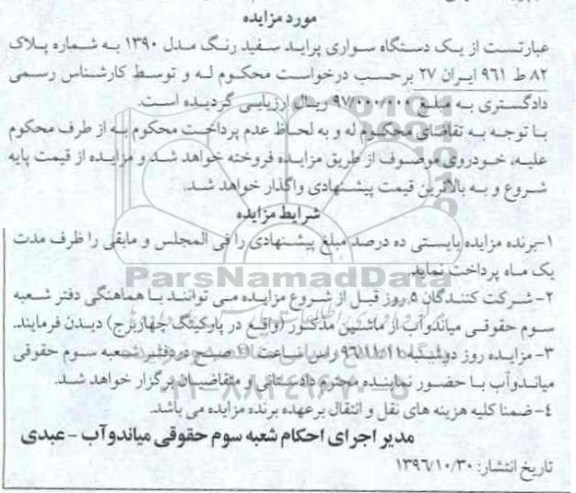 مورد مزایده
عبارتست از یک دستگاه سواری پراید سفید رنگ مدل ۱۳۹۰ به شماره پلاک
۸۲ ط ۹۶۱ ایران ۲۷ برحسب درخواست محکوم له و توسط کارشناس رسمی
دادگستری به مبلغ ۹۷/۰۰۰/۰۰۰ ریال ارزیابی گردیده است.
با توجه به تقاضای محکوم له و به لحاظ عدم پرداخت محکوم به از طرف محکوم
علیه، خودروی موصوف از طریق مزایده فروخته خواهد شد و مزایده از قیمت پایه
شروع و به بالاترین قیمت پیشنهادی واگذار خواهد شد.
شرایط مزایده
۱-برنده مزایده بایستی ده درصد مبلغ پیشنهادی را فی المجلس و مابقی را ظرف مدت
یک ماه پرداخت نماید.
ParsNamadData
۲-شرکت کنندگان ۵ روز قبل از شروع مزایده می توانند با هماهنگی دفتر شعبه
سوم حقوقی میاندوآب از ماشین مذکور (واقع در پارکینگ چهاربرج) دیدن فرمایند.
۳- مزایده روز دوشنبه ۹۶/۱۱/۱۱ راس ساعت ۱۱ صبح در دفتر شعبه سوم حقوقی
میاندوآب با حضور نماینده محترم دادستانی و متقاضیان برگزار خواهد شد.
۰۲۱-۸۸۳۴۹۶۷۰-۵
۴-ضمنا کلیه هزینه های نقل و انتقال برعهده برنده مزایده می باشد.
مدیر اجرای احکام شعبه سوم حقوقی میاندوآب - عبدی
تاریخ انتشار: ۱۳۹۶/۱۰/۳۰